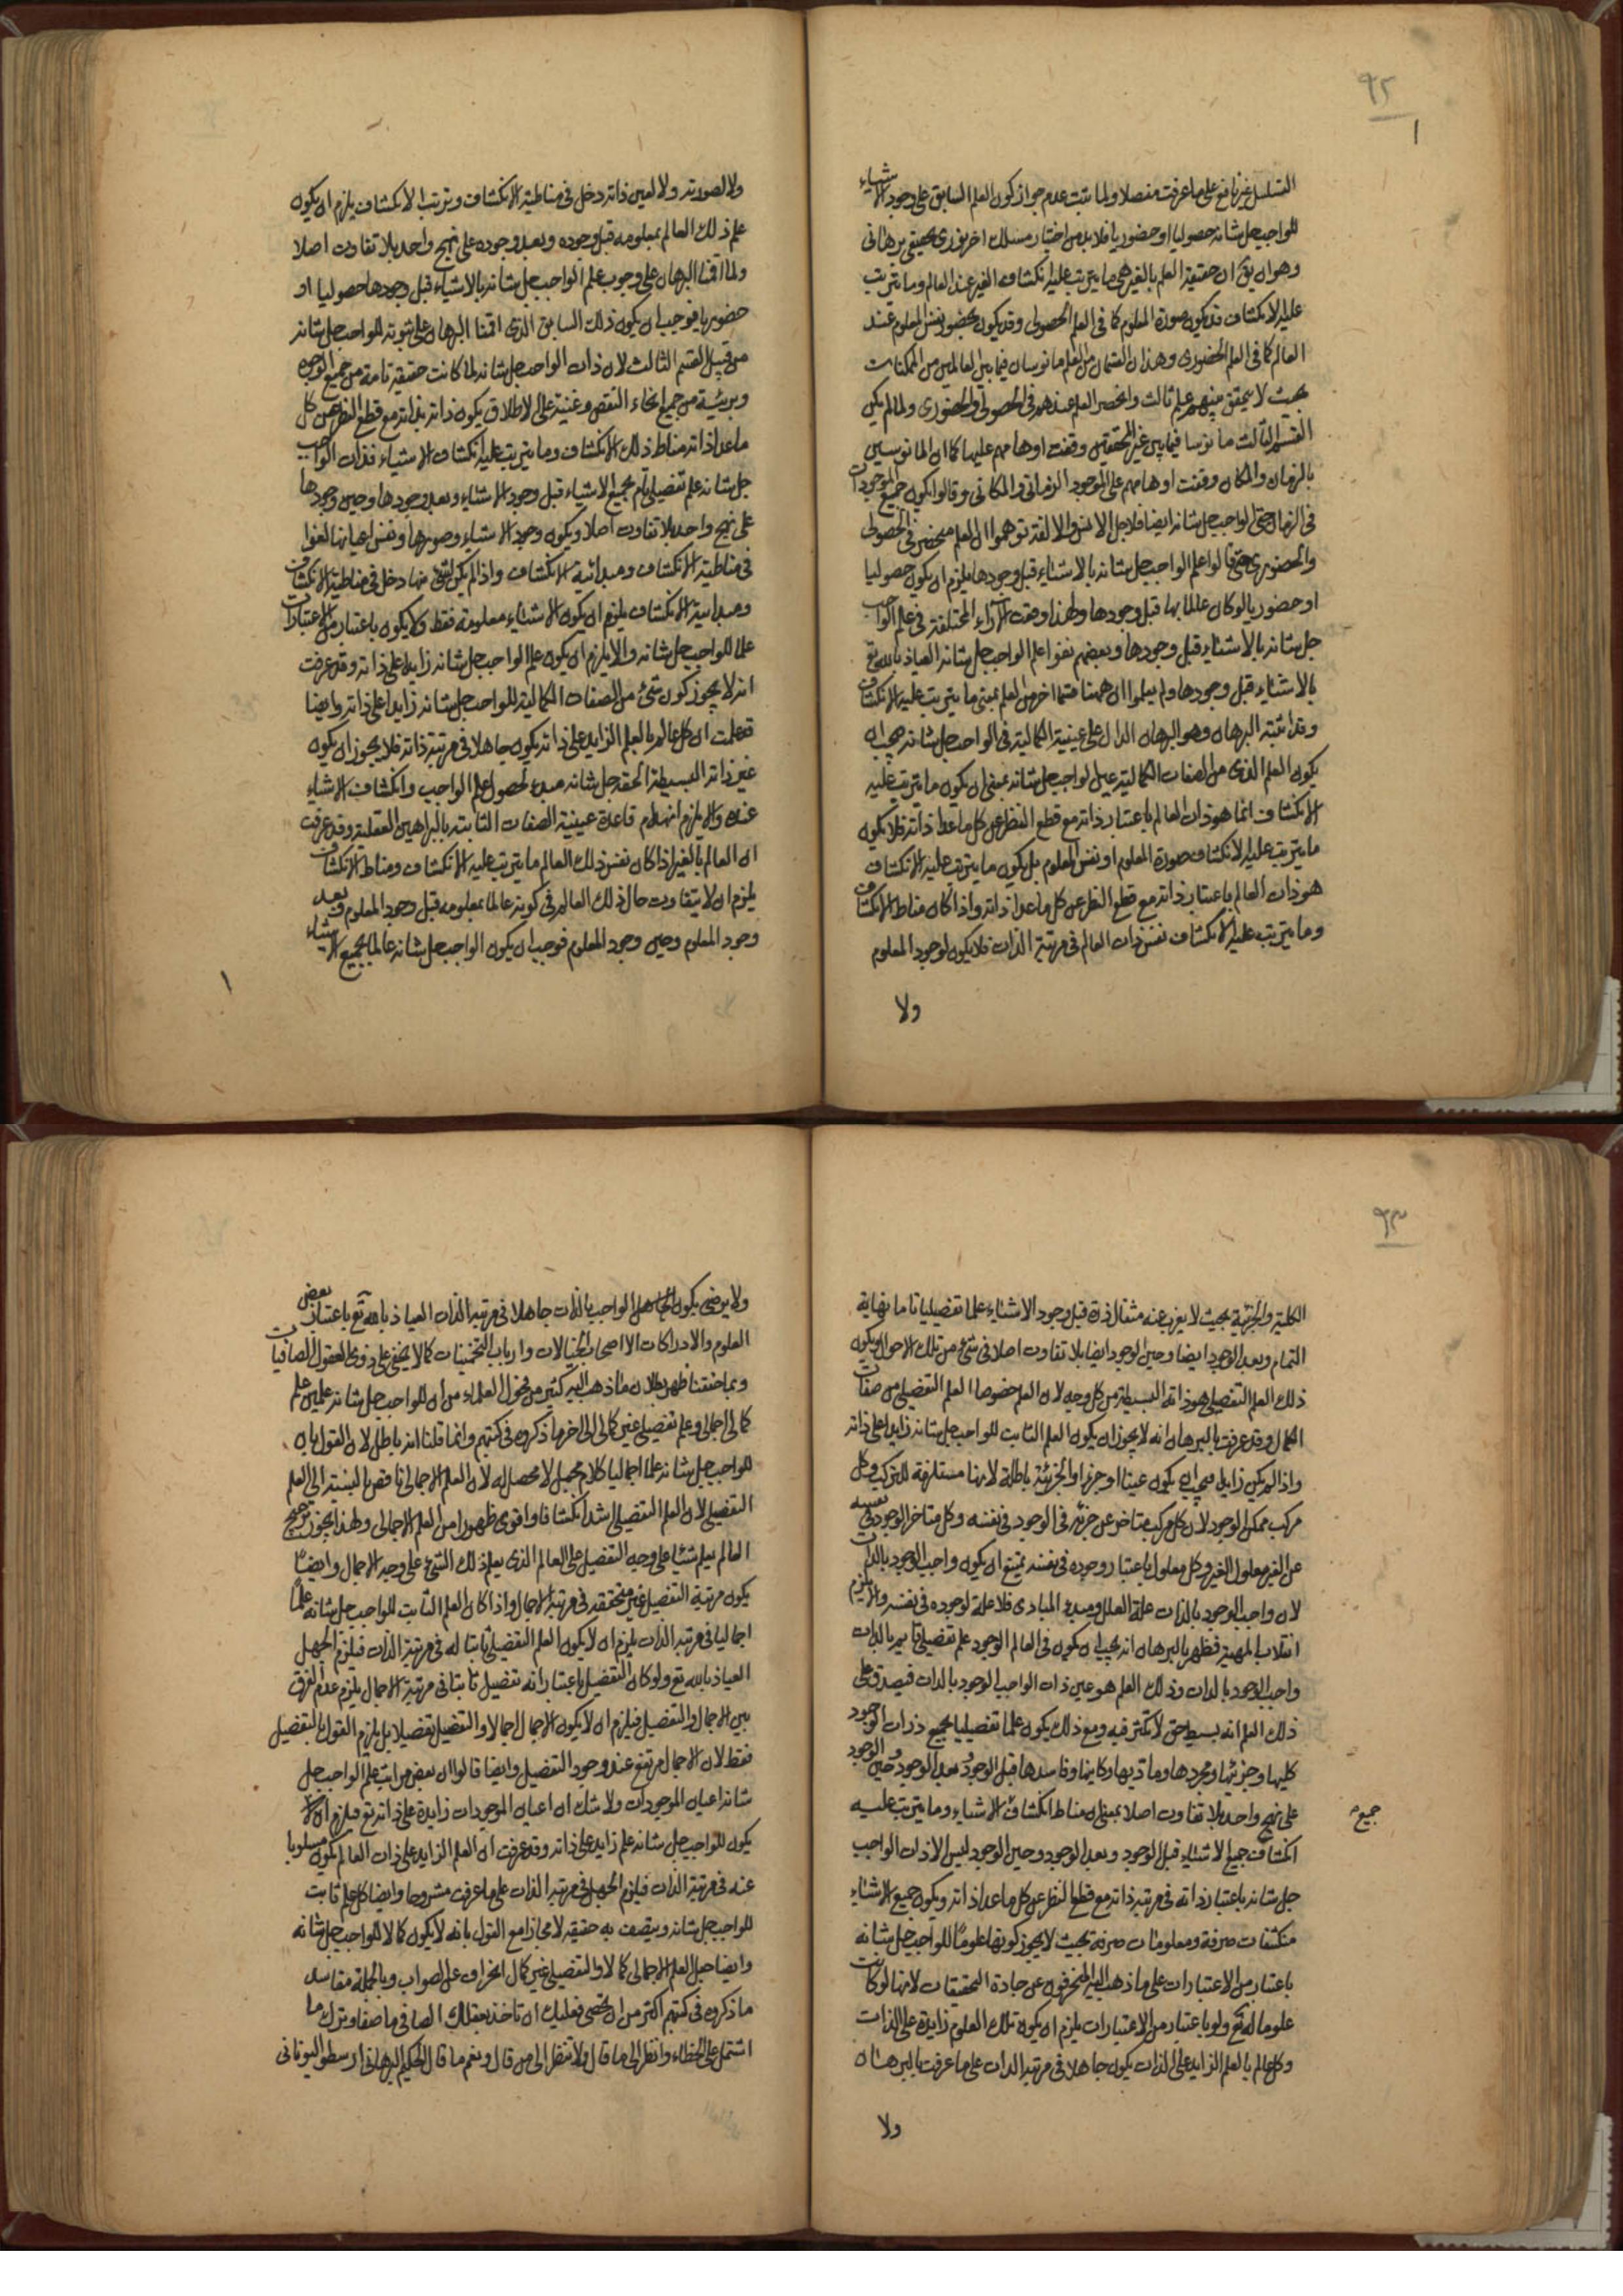 ٩٢
التسلسل غير نافع على ما عرفت مفصلا ولما ثبت عدم جواز كون العلم السابق على وجود الاشياء
للواجب جل شانه حصوليا او حضوريا فلا بد من اختيار مسلك اخر نوري تحقيقي برهاني
وهو ان يق ان حقيقة العلم بالغير هي ما يترتب عليه انكشاف الغير عند العالم وما يترتب
عليه الانكشاف قد يكون صورة المعلوم كما في العلم الحصولي وقد يكون بحضور نفس المعلوم عند
العالم كما في العلم الحضوري وهذان القسمان من العلم مانوسان فيما بين العالمين من الممكنات
بحيث لا يتحقق فيهم علم ثالث وانحصر العلم عندهم في الحصولي والحضوري ولما لم يكن
القسم الثالث مانوسا فيما بين غير المحققين وقفت اوهامهم عليهما كما ان المانوسين
بالزمان والمكان وقفت اوهامهم على الموجود الزماني والمكاني وقالوا يكون جميع الموجودات
في الزمان حتى الواجب جل شانه ايضا فلاجل الانس والالفة توهموا ان العلم منحصر في الحصولي
والحضوري حتى قالوا علم الواجب جل شانه بالاشياء قبل وجودها يلزم ان يكون حصوليا
او حضوريا لو كان عالما بها قبل وجودها ولهذا وقعت الآراء المختلفة في علم الواجب
جل شانه بالاشياء قبل وجودها وبعضهم نفوا علم الواجب جل شانه العياذ بالله تع
بالاشياء قبل وجودها ولم يعلموا ان ههنا قسما اخر من العلم بمعنى ما يترتب عليه الانكشاف
وقد اثبته البرهان وهو البرهان الدال على عينية الكمالية في الواجب جل شانه فيجب ان
يكون العلم الذي من الصفات الكمالية عين الواجب جل شانه بمعنى ان يكون ما يترتب عليه
الانكشاف انما هو ذات العالم باعتبار ذاته مع قطع النظر عن كل ما عدا ذاته فلا يكون
ما يترتب عليه الانكشاف صورة المعلوم او نفس المعلوم بل يكون ما يترتب عليه الانكشاف
هو ذات العالم باعتبار ذاته مع قطع النظر عن كل ما عدا ذاته واذا كان مناط الانكشاف
وما يترتب عليه الانكشاف نفس ذات العالم في مرتبة الذات فلا يكون لوجود المعلوم
ولا
ولا لصورته ولا لعين ذاته دخل في مناطية الانكشاف وترتب الانكشاف يلزم ان يكون
علم ذلك العالم بمعلومه قبل وجوده وبعد وجوده على نهج واحد بلا تفاوت اصلا
ولما اقمنا البرهان على وجوب علم الواجب جل شانه بالاشياء قبل وجودها حصوليا او
حضوريا فوجب ان يكون ذلك السابق الذي اقمنا البرهان على ثبوته للواجب جل شانه
من قبيل القسم الثالث لان ذات الواجب جل شانه لما كانت حقيقة تامة من جميع الوجوه
وبريئة من جميع انحاء النقص وغنية على الاطلاق يكون ذاته بذاته مع قطع النظر عن كل
ما عدا ذاته مناط ذلك الانكشاف وما يترتب عليه انكشاف الاشياء فذات الواجب
جل شانه علم تفصيلي تام بجميع الاشياء قبل وجود الاشياء وبعد وجودها وحين وجودها
على نهج واحد بلا تفاوت اصلا ويكون وجود الاشياء وصورها ونفس اعيانها لغوا
في مناطية الانكشاف ومبدائية الانكشاف واذا لم يكن لشئ منها دخل في مناطية الانكشاف
ومبدائية الانكشاف يلزم ان يكون الاشياء معلومة فقط ولا يكون باعتبار من الاعتبارات
علما للواجب جل شانه والا يلزم ان يكون علم الواجب جل شانه زايدا على ذاته وقد عرفت
انه لا يجوز كون شئ من الصفات الكمالية للواجب جل شانه زايدا على ذاته وايضا
قد علمت ان كل عالم بالعلم الزايد على ذاته يكون جاهلا في مرتبة ذاته فلا يجوز ان يكون
غير ذاته البسيطة الحقة جل شانه مبدء لحصول علم الواجب وانكشاف الاشياء
عنده والا يلزم انهدام قاعدة عينية الصفات الثابتة بالبراهين العقلية وقد عرفت
ان العالم بالغير اذا كان نفس ذلك العالم ما يترتب عليه الانكشاف ومناط الانكشاف
يلزم ان لا يتفاوت حال ذلك العالم في كونه عالما بمعلومه قبل وجود المعلوم وبعد
وجود المعلوم وحين وجود المعلوم فوجب ان يكون الواجب جل شانه عالما بجميع الاشياء
٩٣
الكلية والجزئية بحيث لا يعزب عنه مثقال ذرة قبل وجود الاشياء علما تفصيليا تاما نهاية
التمام وبعد الوجود ايضا وحين الوجود ايضا بلا تفاوت اصلا في شئ من تلك الاحوال ويكون
ذلك العلم التفصيلي هو ذاته البسيطة من كل وجه لان العلم خصوصا العلم التفصيلي من صفات
الكمال وقد عرفت بالبرهان انه لا يجوز ان يكون العلم الثابت للواجب جل شانه زايدا على ذاته
واذا لم يكن زايدا فيجب ان يكون عينا او جزءا والجزئية باطلة لانها مستلزمة للتركيب وكل
مركب ممكن الوجود لان كل مركب متاخر عن جزئه في الوجود في نفسه وكل متاخر الوجود في نفسه
عن الغير معلول الغير وكل معلول باعتبار وجوده في نفسه يمتنع ان يكون واجب الوجود بالذات
لان واجب الوجود بالذات علة العلل ومبدء المبادي فلا علة لوجوده في نفسه والا يلزم
انقلاب المهية فظهر بالبرهان انه يجب ان يكون في العالم الوجود علم تفصيلي تام بالذات
واجب الوجود بالذات وذلك العلم هو عين ذات الواجب الوجود بالذات فيصدق على
ذلك العلم انه بسيط حق لا تكثر فيه ومع ذلك يكون علما تفصيليا بجميع ذرات الوجود
كليها وجزئيها ومجردها وماديها وكاينها وفاسدها قبل الوجود وبعد الوجود وحين الوجود
على نهج واحد بلا تفاوت اصلا بمعنى ان مناط انكشاف الاشياء وما يترتب عليه
جميع
انكشاف جميع الاشياء قبل الوجود وبعد الوجود وحين الوجود ليس الا ذات الواجب
جل شانه باعتبار ذاته في مرتبة ذاته مع قطع النظر عن كل ما عدا ذاته ويكون جميع الاشياء
منكشفات صرفة ومعلومات صرفة بحيث لا يجوز كونها علوما للواجب جل شانه
باعتبار من الاعتبارات على ما ذهب اليه المنحرفون عن جادة التحقيقات لانها لو كانت
علوما له تع ولو باعتبار من الاعتبارات يلزم ان يكون تلك العلوم زايدة على الذات
وكل عالم بالعلم الزايد على الذات يكون جاهلا في مرتبة الذات على ما عرفت بالبرهان
ولا
ولا يرضى بكون الواجب بالذات جاهلا في مرتبة الذات العياذ بالله تع باعتبار بعض
العلوم والادراكات الا اصحاب الخيالات وارباب التخمينات كما لا يخفى على ذوي العقول الصافيات
وبما حققنا ظهر بطلان ما ذهب اليه كثير من فحول العلماء من ان للواجب جل شانه علمين علم
كمالي اجمالي وعلم تفصيلي غير كمالي الى اخر ما ذكروه في كتبهم وانما قلنا انه باطل لان القول بان
للواجب جل شانه علما اجماليا كلام مجمل لا محصل له لان العلم الاجمالي ناقص بالنسبة الى العلم
التفصيلي لان العلم التفصيلي اشد انكشافا واقوى ظهورا من العلم الاجمالي ولهذا يجوز ترجيح
العالم يعلم شيئا على وجه التفصيل على العالم الذي يعلم ذلك الشئ على وجه الاجمال وايضا
يكون مرتبة التفصيل غير متحققة في مرتبة الاجمال واذا كان العلم الثابت للواجب جل شانه علما
اجماليا في مرتبة الذات يلزم ان لا يكون العلم التفصيلي ثابتا له في مرتبة الذات فيلزم الجهل
العياذ بالله تع ولو كان التفصيل باعتبار انه تفصيل ثابتا في مرتبة الاجمال يلزم عدم الفرق
بين الاجمال والتفصيل فيلزم ان لا يكون الاجمال اجمالا والتفصيل تفصيلا بل يلزم القول بالتفصيل
فقط لان الاجمال مرتفع عند وجود التفصيل وايضا قالوا ان بعض مراتب علم الواجب جل
شانه اعيان الموجودات ولا شك ان اعيان الموجودات زايدة على ذاته تع فيلزم ان
يكون للواجب جل شانه علم زايد على ذاته وقد عرفت ان العلم الزايد على ذات العالم يكون مسلوبا
عنه في مرتبة الذات فيلزم الجهل في مرتبة الذات على ما عرفت مشروحا وايضا كل علم ثابت
للواجب جل شانه ويتصف به حقيقة لا مجازا مع القول بانه لا يكون كمالا للواجب جل شانه
وايضا جعل العلم الاجمالي كمالا والتفصيلي غير كمال انحراف عن الصواب وبالجملة مفاسد
ما ذكروه في كتبهم اكثر من ان يحصى فعليك ان تاخذ بعقلك الصافي ما صفا وتترك ما
اشتمل على الخطاء وانظر الى ما قال ولا تنظر الى من قال ونعم ما قال الحكيم البرهاني ارسطو اليوناني